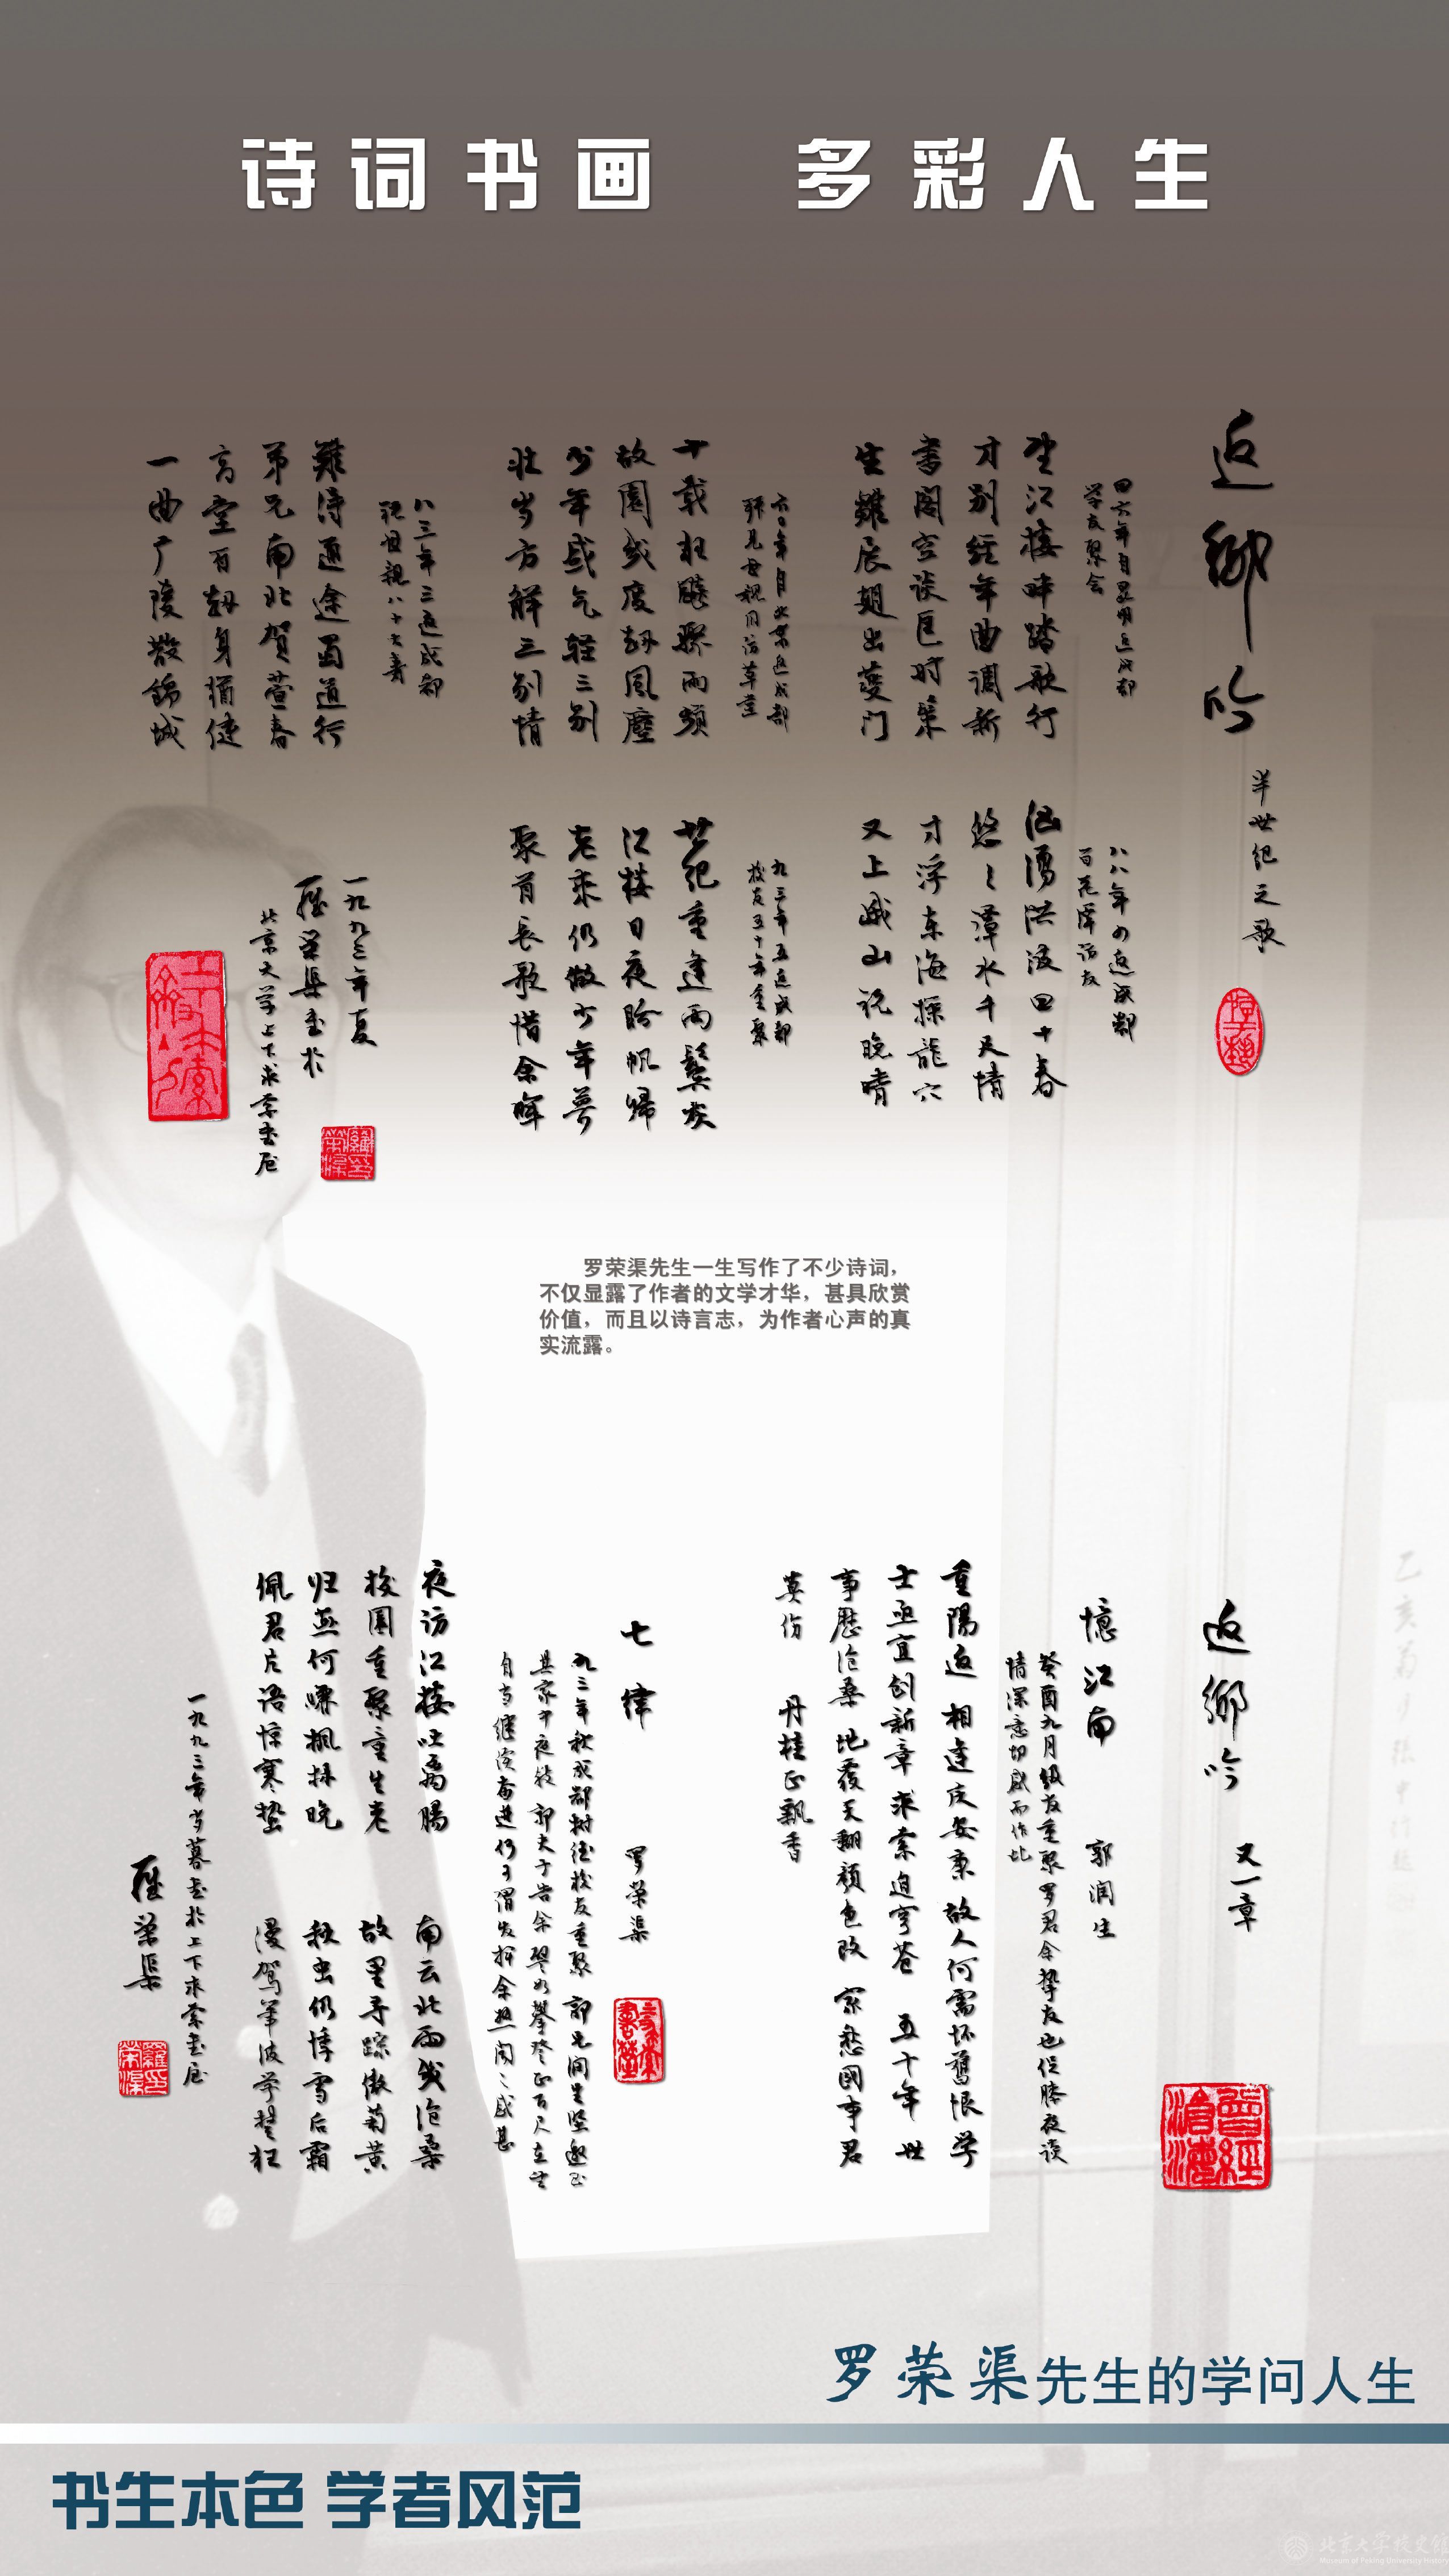 诗词书画 多彩人生
返鄉吟
半世纪之歌
四六年自昆明返成都
学友聚会
望江楼畔踏歌行
才别经年曲调新
書阁空谈匡时策
生雛展翅出夔门
八八年四返成都
百花潭访友
汹涌洪波四十春
悠々潭水千尺情
才浮东海探龍穴
又上峨山说晚晴
六〇年自北京返成都
拜见母親同访草堂
十载狂飚骤雨频
故園几度劫風塵
少年盛气轻三别
壮岁方解三别情
九三年五返成都
校友五十年重聚
世纪重逢两鬓灰
江楼日夜盼帆歸
老来仍做少年夢
聚首長歌惜余暉
八三年三返成都
祝母親八十大寿
難得通途蜀道行
弟兄南北贺萱春
高堂百劫身猶健
一曲广陵散錦城
一九九三年夏
羅荣渠書於
北京大学上下求索書屋
罗荣渠先生一生写作了不少诗词，
不仅显露了作者的文学才华，甚具欣赏
价值，而且以诗言志，为作者心声的真
实流露。
返鄉吟 又一章
憶江南 郭润生
癸酉九月级友重聚罗君余挚友也促膝夜谈
情深意切感而作此
重陽返 相逢庆安康 故人何需怀舊恨 学
士亟宜创新章 求索迫穹苍 五十年 世
事歷沧桑 地覆天翻颜色改 家愁國事君
莫伤 丹桂正飘香
七律 罗荣渠
九三年秋成都树德校友重聚 郭兄润生坚邀至
其家中夜谈
夜访江楼吐离腸
南云北雨几沧桑
校園重聚重生老
故里寻踪傲菊黄
归燕何嫌枫林晚
秋虫仍悸雪后霜
佩君片语惊寒蛰
漫驾笔波学楚狂
一九九三年岁暮書於上下求索書屋
羅荣渠
罗荣渠先生的学问人生
书生本色 学者风范
北京大学校史馆
Museum of Peking University History